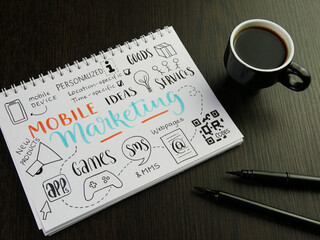 PERSONALIZED
GOODS
&
SERVICES
mobile
DEVICE
Location-specific
Time-specific
IDEAS
MOBILE
Marketing
NEW
PRODUCTS
APP
GAMES
SMS
& MMS
Webpages
@
QR
CODES